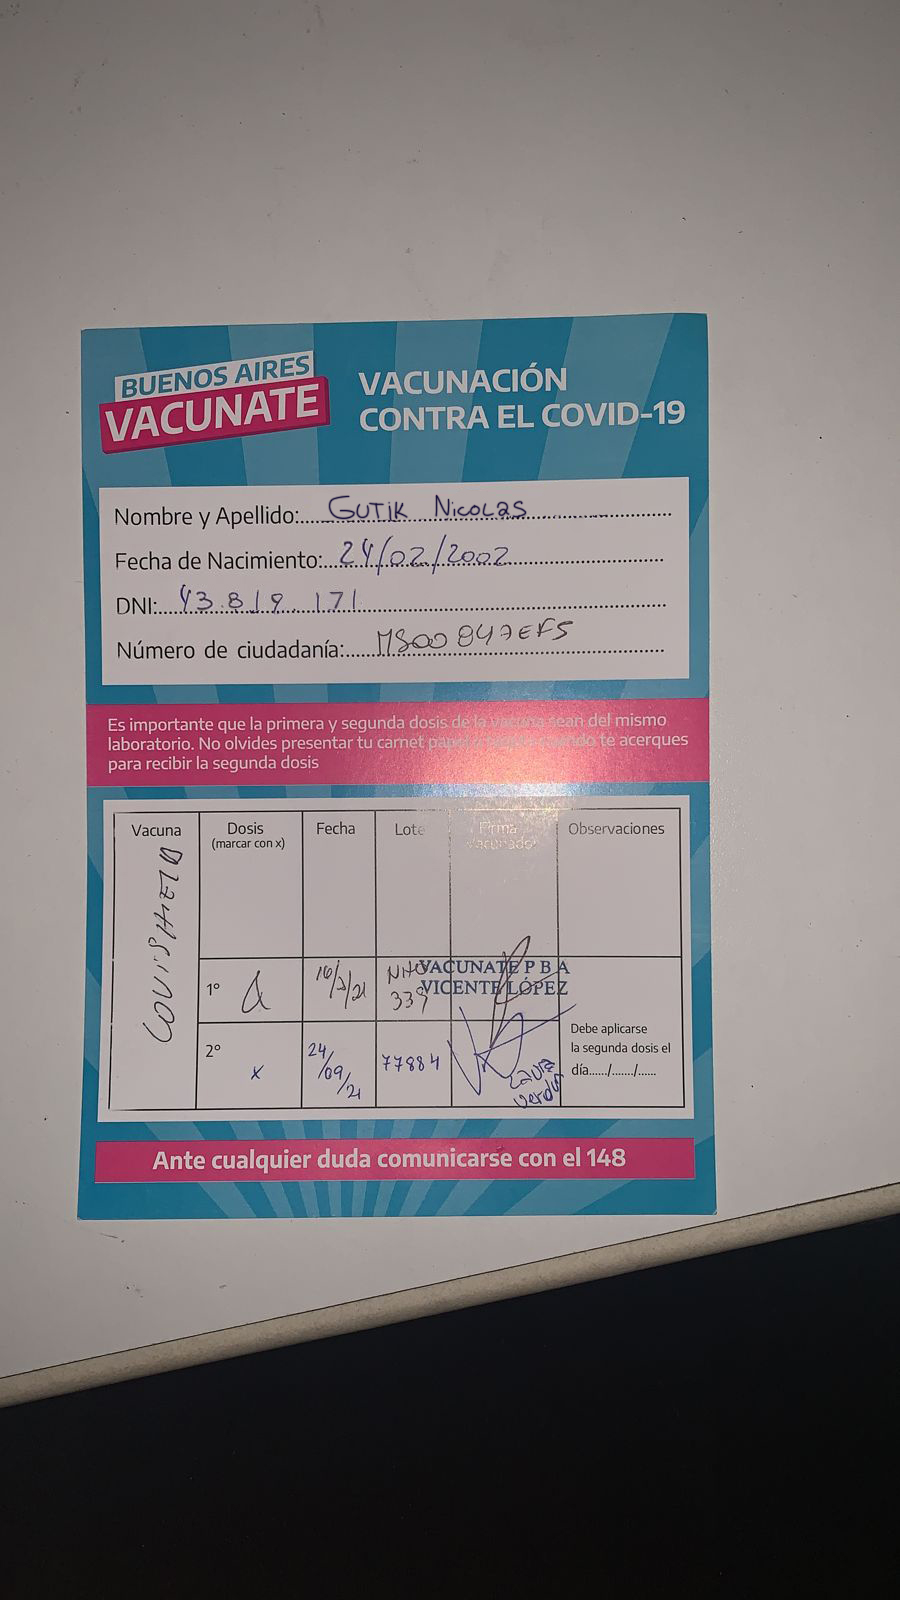 BUENOS AIRES
VACUNATE
VACUNACIÓN
CONTRA EL COVID-19
Nombre y Apellido: GUTIK NICOLAS
Fecha de Nacimiento: 24/02/2002
DNI: 43.819.171
Número de ciudadanía:
Es importante que la primera y segunda dosis de la vacuna sean del mismo
laboratorio. No olvides presentar tu carnet cuando te acerques
para recibir la segunda dosis
Vacuna Dosis Fecha Lote Firma Observaciones
(marcar con x) vacunador
COVISHIELD
1°
VACUNATE P B A
VICENTE LÓPEZ
339
2° x 24/09/21 77884
Laura
Debe aplicarse
la segunda dosis el
día....../......./......
Ante cualquier duda comunicarse con el 148